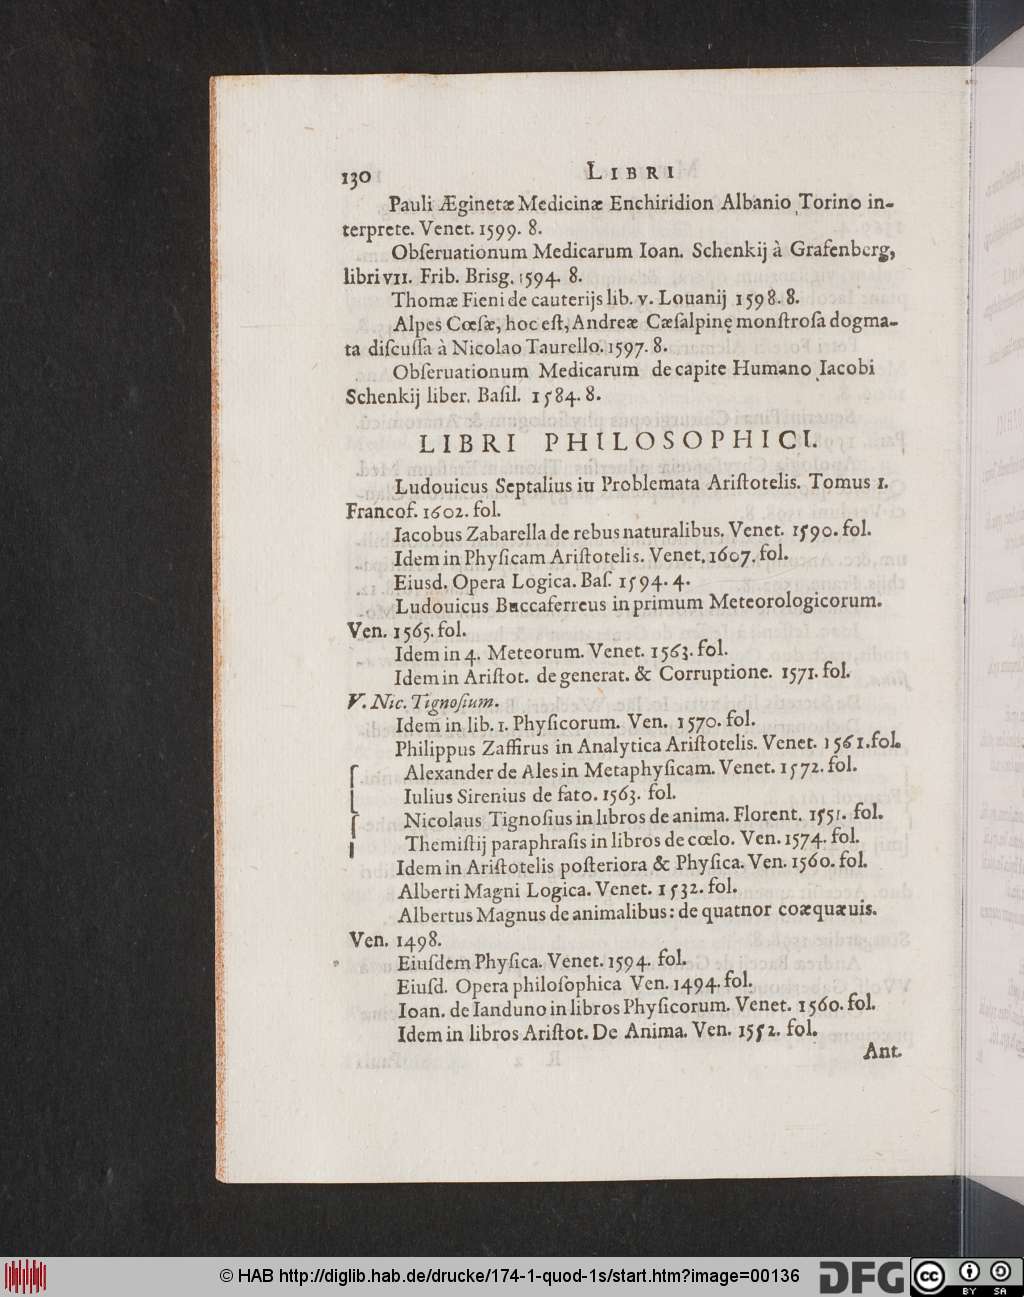 130 LIBRI
Pauli Æginetæ Medicinæ Enchiridion Albanio Torino in-
terprete. Venet. 1599. 8.
Obſeruationum Medicarum Ioan. Schenkij à Grafenberg,
libri VII. Frib. Brisg. 1594. 8.
Thomæ Fieni de cauterijs lib. v. Louanij 1598. 8.
Alpes Cœſæ, hoc eſt, Andreæ Cæſalpinę monſtroſa dogma-
ta diſcuſſa à Nicolao Taurello. 1597. 8.
Obſeruationum Medicarum de capite Humano Iacobi
Schenkij liber. Baſil. 1584. 8.
LIBRI PHILOSOPHICI.
Ludouicus Septalius iu Problemata Ariſtotelis. Tomus 1.
Francof. 1602. fol.
Iacobus Zabarella de rebus naturalibus. Venet. 1590. fol.
Idem in Phyſicam Ariſtotelis. Venet. 1607. fol.
Eiusd. Opera Logica. Baſ. 1594. 4.
Ludouicus Buccaferreus in primum Meteorologicorum.
Ven. 1565. fol.
Idem in 4. Meteorum. Venet. 1563. fol.
Idem in Ariſtot. de generat. & Corruptione. 1571. fol.
V. Nic. Tignoſium.
Idem in lib. 1. Phyſicorum. Ven. 1570. fol.
Philippus Zaffirus in Analytica Ariſtotelis. Venet. 1561. fol.
Alexander de Ales in Metaphyſicam. Venet. 1572. fol.
Iulius Sirenius de fato. 1563. fol.
Nicolaus Tignoſius in libros de anima. Florent. 1551. fol.
Themiſtij paraphraſis in libros de cœlo. Ven. 1574. fol.
Idem in Ariſtotelis poſteriora & Phyſica. Ven. 1560. fol.
Alberti Magni Logica. Venet. 1532. fol.
Albertus Magnus de animalibus: de quatnor coæquæuis.
Ven. 1498.
Eiuſdem Phyſica. Venet. 1594. fol.
Eiuſd. Opera philoſophica Ven. 1494. fol.
Ioan. de Ianduno in libros Phyſicorum. Venet. 1560. fol.
Idem in libros Ariſtot. De Anima. Ven. 1552. fol.
Ant.
© HAB http://diglib.hab.de/drucke/174-1-quod-1s/start.htm?image=00136 DFG cc BY SA